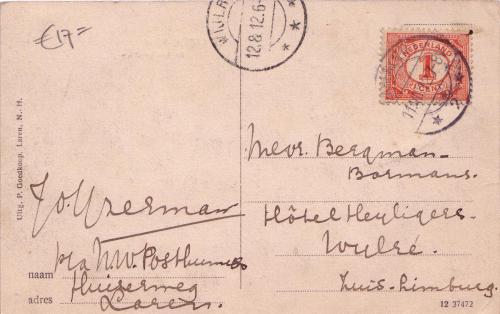 €17=
WIJLR
12.8.12.6
NEDERLAND
1
CENT
Mevr. Bergman-
Bormans.
Hôtel Heyligers.
Wylré.
Zuid-Limburg.
Jo. IJzerman
p/a N.W. Posthumus
naam
Huizerweg
adres
Laren.
Uitg. P. Goedkoop, Laren, N.-H.
12 37472